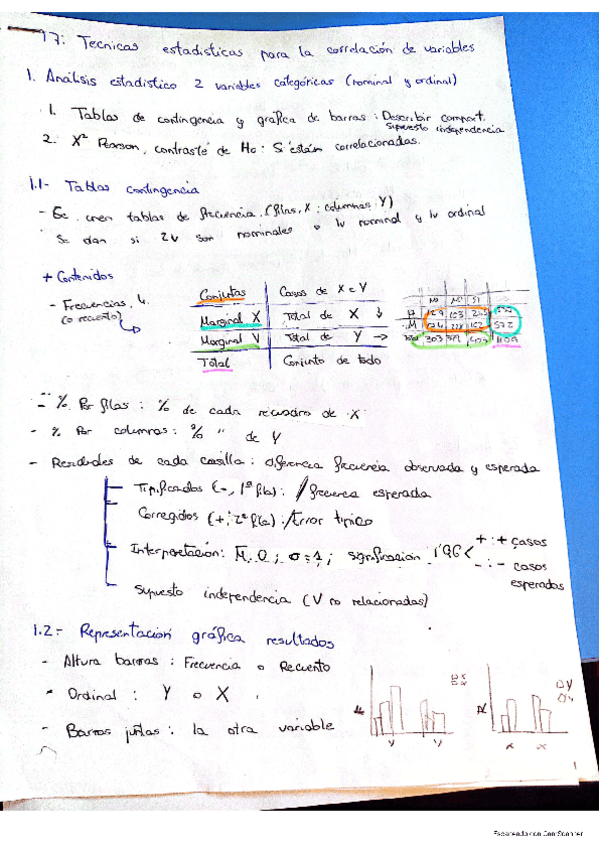 17: Tecnicas estadisticas para la correlación de variables
1. Análisis estadístico 2 variables categóricas (nominal y ordinal)
1. Tablas de contingencia y grafica de barras: Describir comport.
Supuesto independencia
2. X² Pearson, contraste de Ho: Si están correlacionadas.
1.1- Tablas contingencia
- Se crean tablas de frecuencia. (filas, X; columnas. Y)
Se dan si 2V son nominales o 1v nominal y 1v ordinal
+ Contenidos
- Frecuencias
(o recuento)
Conjuntas Casos de X e Y
Marginal X Total de X ↓
Marginal Y Total de Y →
Total Conjunto de todo
NO SI
H 129 103
M 572
Total 303
- % Por filas: % de cada recuadro de X
- % Por columnas: % " de Y
- Residuales de cada casilla: diferencia frecuencia observada y esperada
Tipificados (-, 1ª fila): / frecuencia esperada
Corregidos (+; 2ª fila): / Error tipico
Interpretación: M. 0; σ=1; significación 1'96 <
+ : + casos
- : - casos
esperados
Supuesto independencia (V no relacionadas)
1.2- Representación gráfica resultados
- Altura barras: Frecuencia o Recuento
- Ordinal: Y o X
- Barras juntas: la otra variable
Y Y
X X
1
Escaneado con CamScanner